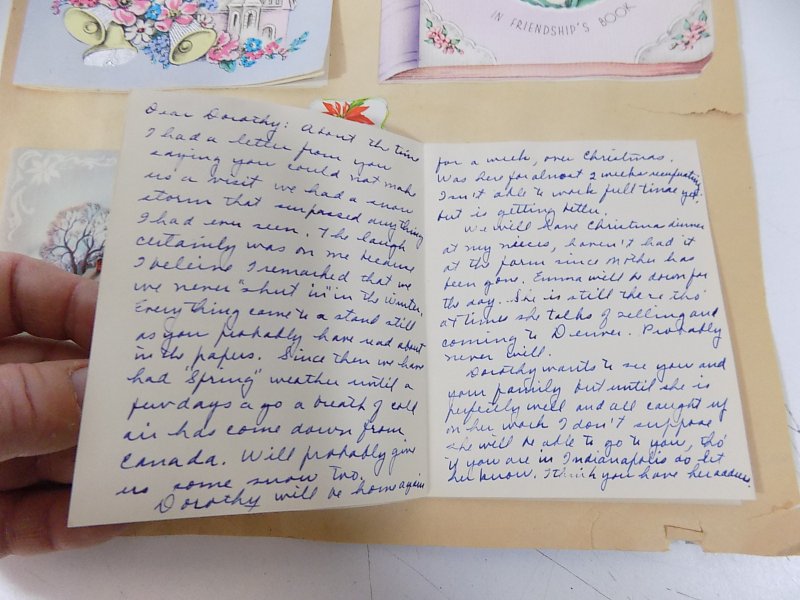 IN FRIENDSHIP'S BOOK
Dear Dorothy: About the time
I had a letter from you
saying you could not make
us a visit we had a snow
storm that surpassed anything
I had ever seen. The laugh
certainly was on me because
I beleive I remarked that we
we never "shut in" in the winter.
Everything came to a stand still
as you probably have read about
in the papers. Since then we have
had "Spring" weather until a
few days a go a breath of cold
air has come down from
Canada. Will probably give
us some snow too.
Dorothy will be home again
for a week, over Christmas.
Was here for almost 2 weeks recuperating.
Isn't able to work full time yet,
but is getting better.
We will have Christmas dinner
at my nieces, haven't had it
at the farm since Mother has
been gone. Emma will be down for
the day. She is still there tho'
at times she talks of selling and
coming to Denver. Probably
never will.
Dorothy wants to see you and
your family but until she is
perfectly well and all caught up
on her work I don't suppose
she will be able to go to you, tho'
if you are in Indianapolis do let
her know. I think you have her address.